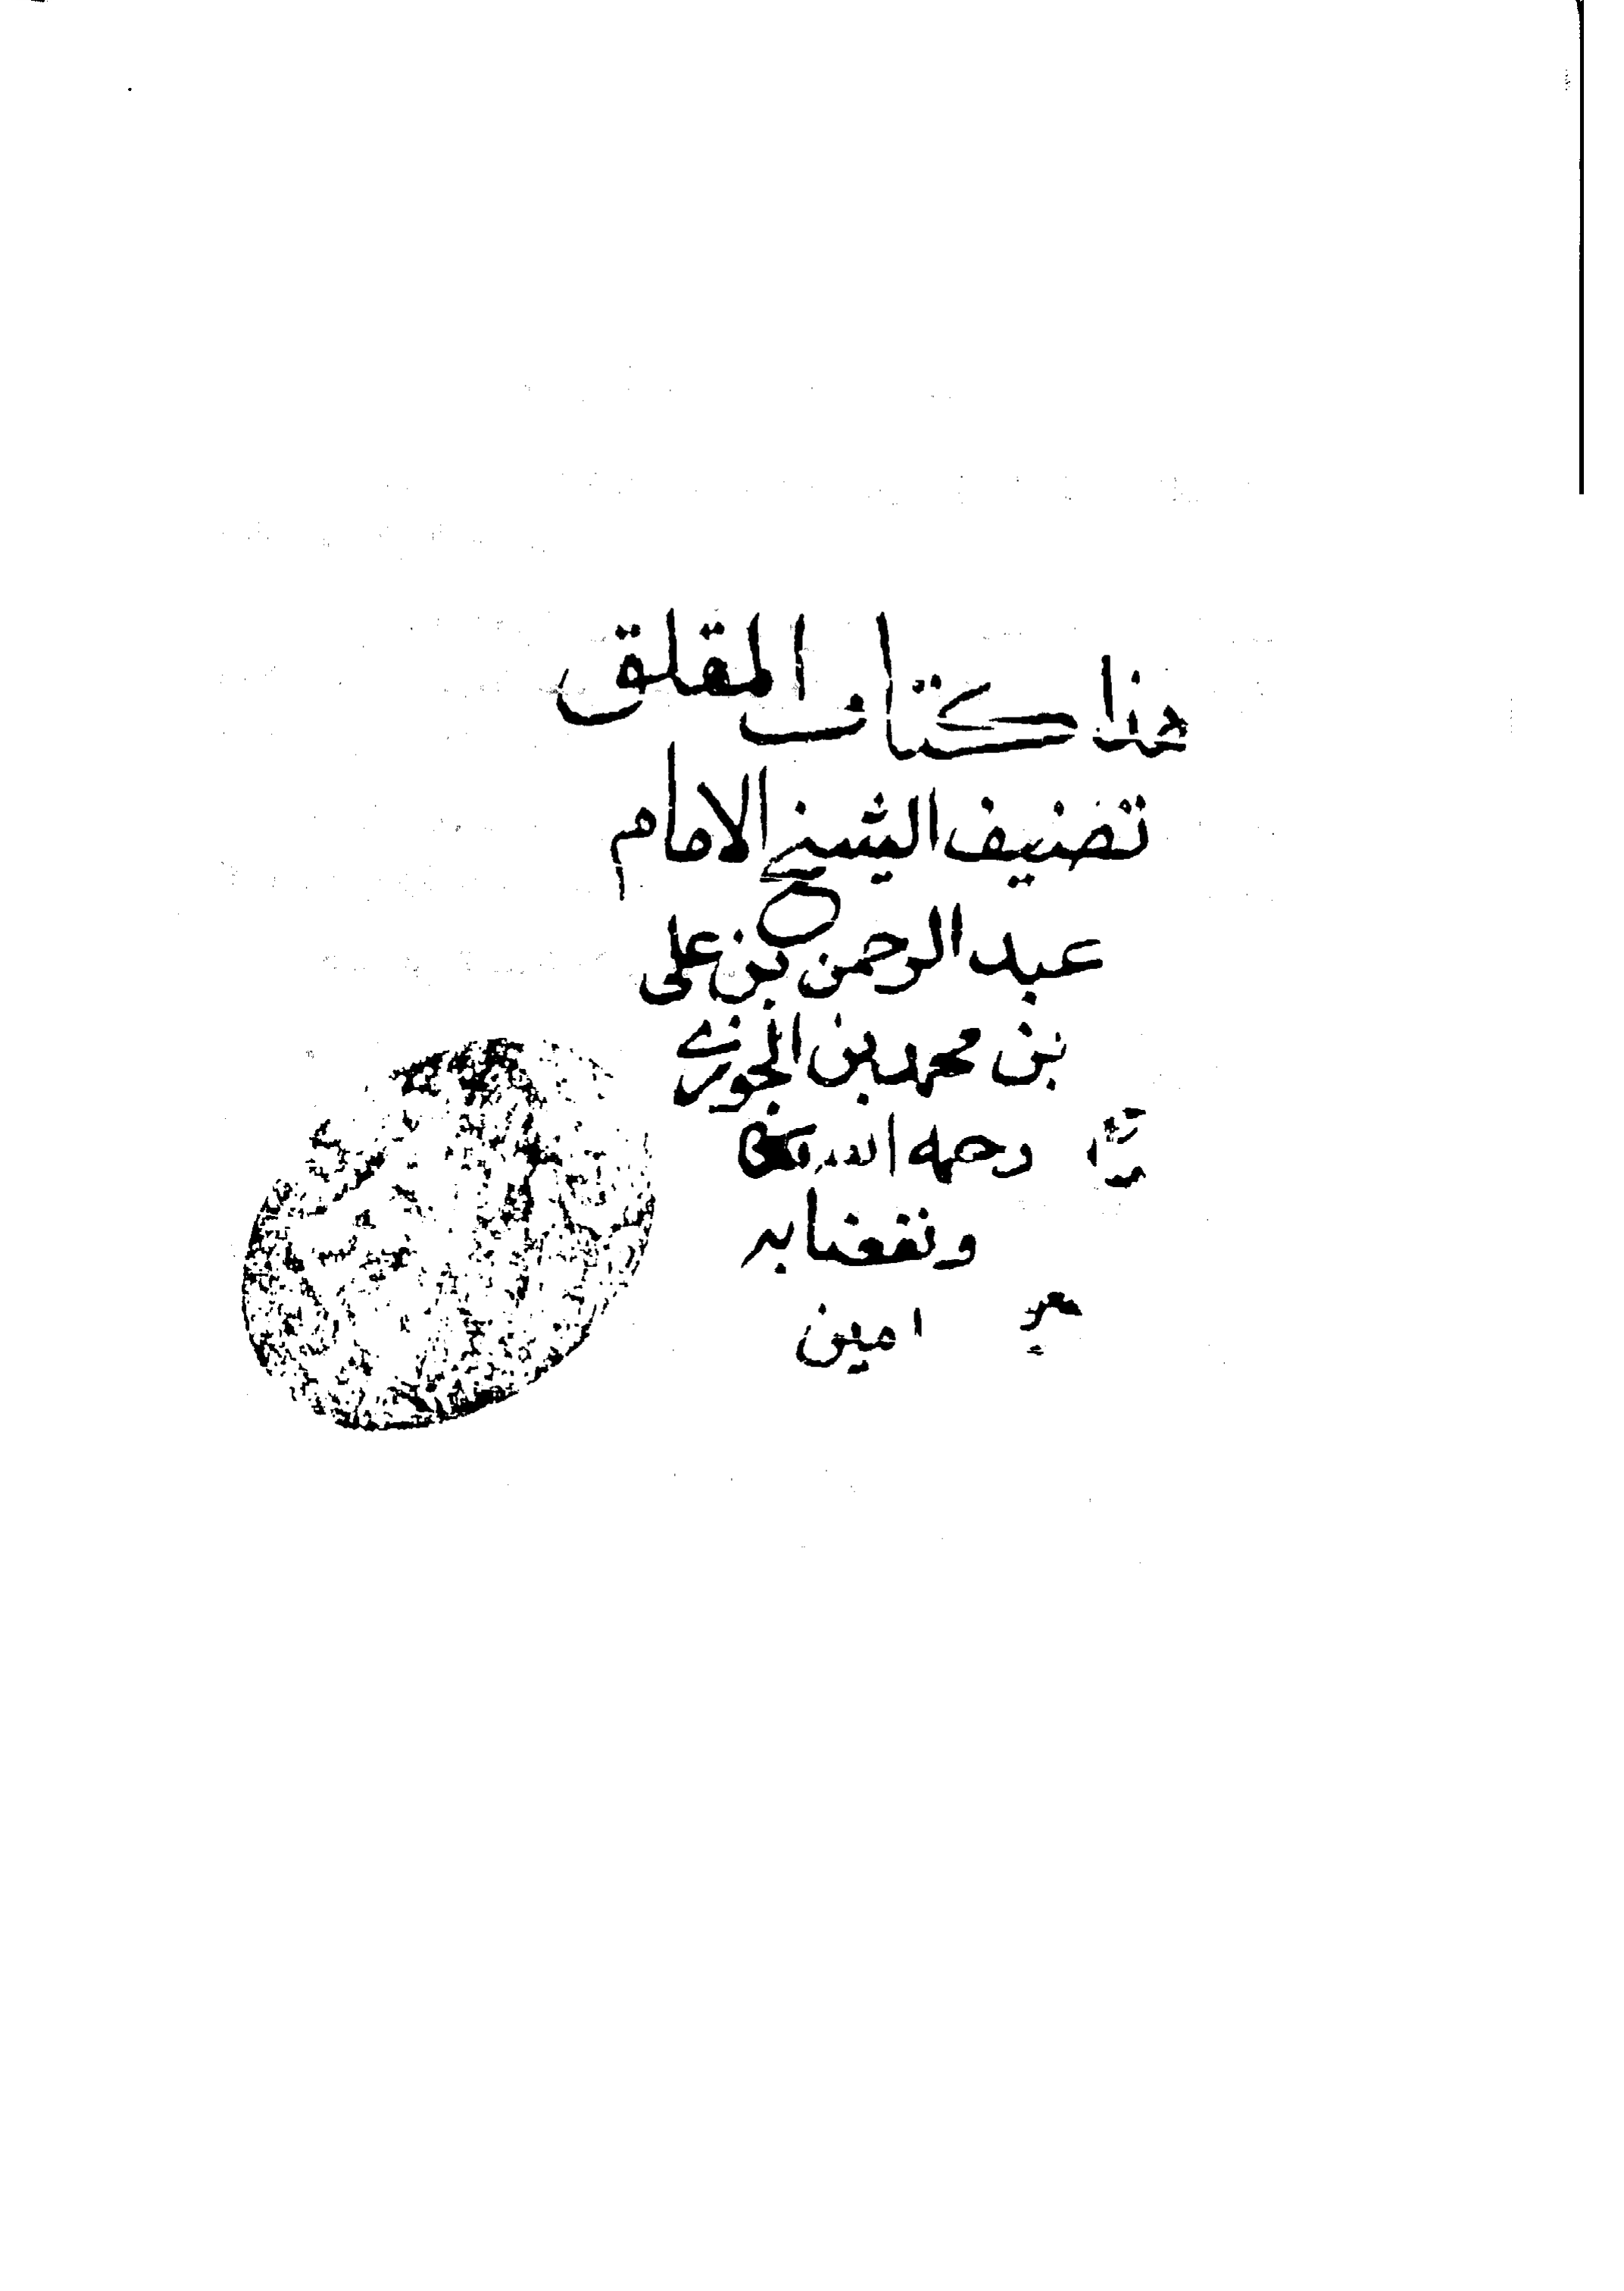 هذا كتاب المقلق
تصنيف الشيخ الامام
عبد الرحمن بن علي
بن محمد بن الجوزي
رحمه الله
ونفعنا به
امين